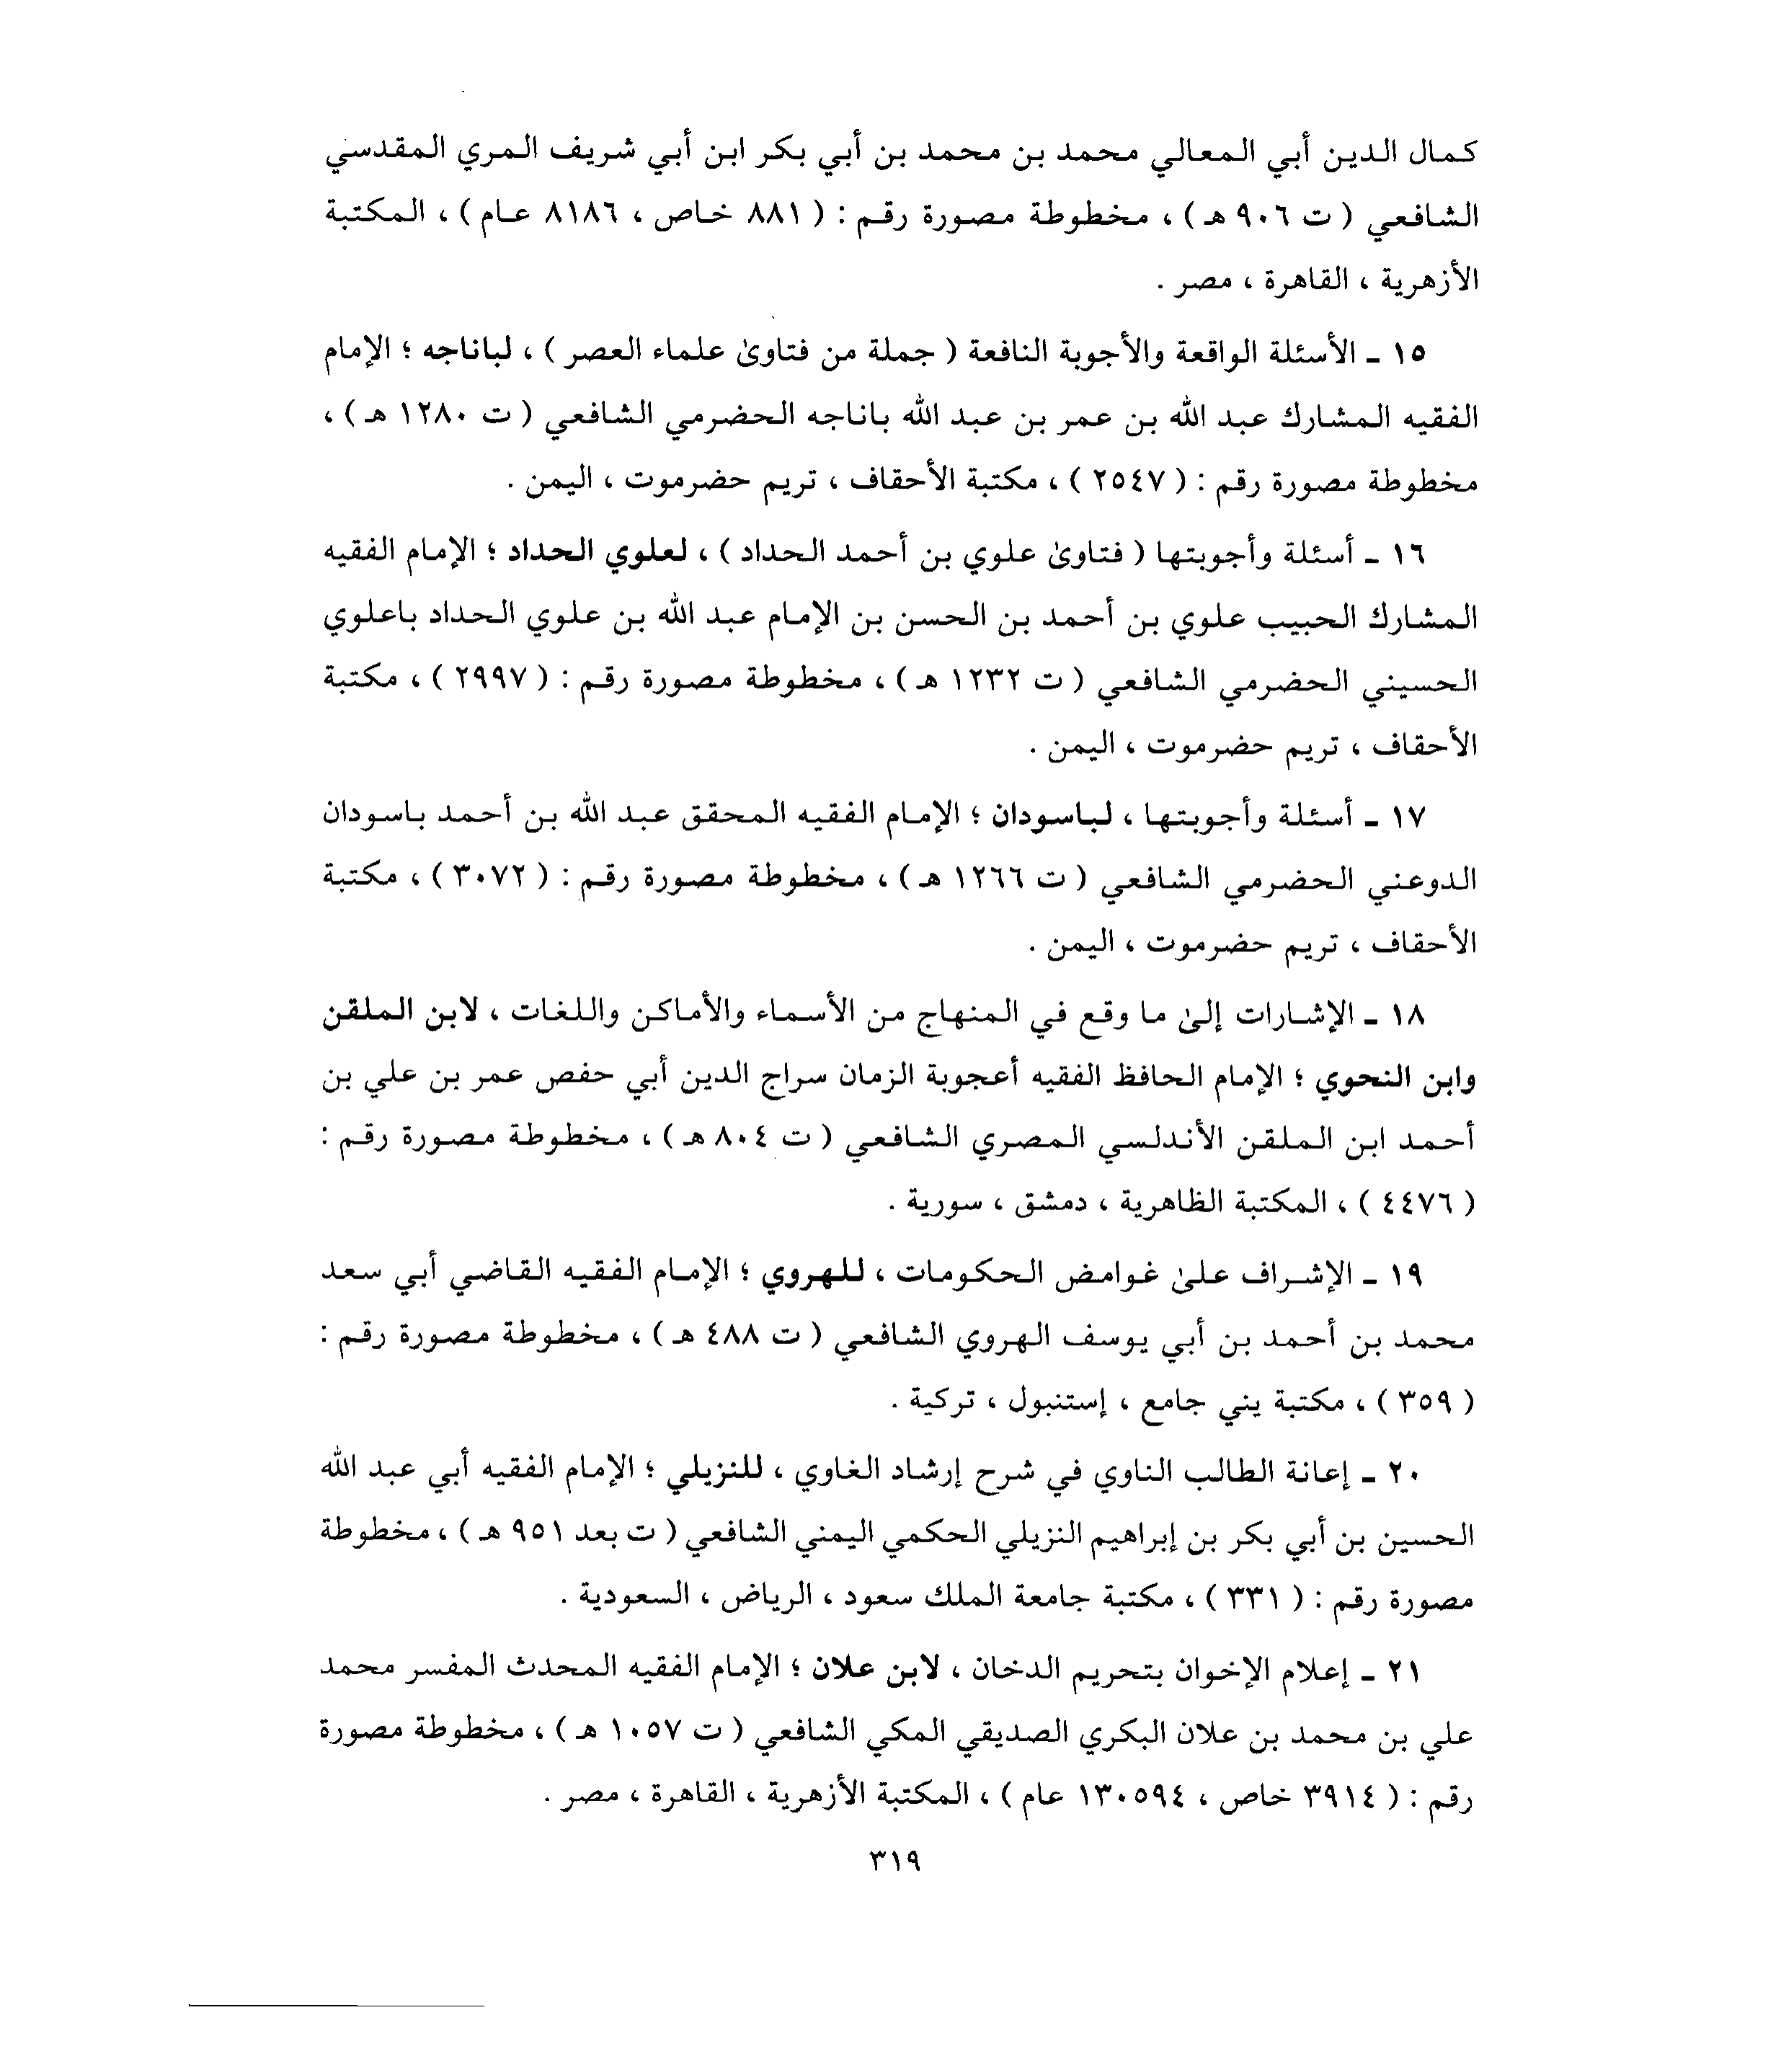 كمال الدين أبي المعالي محمد بن محمد بن أبي بكر ابن أبي شريف المري المقدسي
الشافعي ( ت ٩٠٦ هـ ) ، مخطوطة مصورة رقم : ( ٨٨١ خاص ، ٨١٨٦ عام ) ، المكتبة
الأزهرية ، القاهرة ، مصر .
١٥ ـ الأسئلة الواقعة والأجوبة النافعة ( جملة من فتاوىٰ علماء العصر ) ، لباناجه ؛ الإمام
الفقيه المشارك عبد الله بن عمر بن عبد الله باناجه الحضرمي الشافعي ( ت ١٢٨٠ هـ ) ،
مخطوطة مصورة رقم : ( ٢٥٤٧ ) ، مكتبة الأحقاف ، تريم حضرموت ، اليمن .
١٦ ـ أسئلة وأجوبتها ( فتاوىٰ علوي بن أحمد الحداد ) ، لعلوي الحداد ؛ الإمام الفقيه
المشارك الحبيب علوي بن أحمد بن الحسن بن الإمام عبد الله بن علوي الحداد باعلوي
الحسيني الحضرمي الشافعي ( ت ١٢٣٢ هـ ) ، مخطوطة مصورة رقم : ( ٢٩٩٧ ) ، مكتبة
الأحقاف ، تريم حضرموت ، اليمن .
١٧ ـ أسئلة وأجوبتها ، لباسودان ؛ الإمام الفقيه المحقق عبد الله بن أحمد باسودان
الدوعني الحضرمي الشافعي ( ت ١٢٦٦ هـ ) ، مخطوطة مصورة رقم : ( ٣٠٧٢ ) ، مكتبة
الأحقاف ، تريم حضرموت ، اليمن .
١٨ ـ الإشارات إلىٰ ما وقع في المنهاج من الأسماء والأماكن واللغات ، لابن الملقن
وابن النحوي ؛ الإمام الحافظ الفقيه أعجوبة الزمان سراج الدين أبي حفص عمر بن علي بن
أحمد ابن الملقن الأندلسي المصري الشافعي ( ت ٨٠٤ هـ ) ، مخطوطة مصورة رقم :
( ٤٤٧٦ ) ، المكتبة الظاهرية ، دمشق ، سورية .
١٩ ـ الإشراف علىٰ غوامض الحكومات ، للهروي ؛ الإمام الفقيه القاضي أبي سعد
محمد بن أحمد بن أبي يوسف الهروي الشافعي ( ت ٤٨٨ هـ ) ، مخطوطة مصورة رقم :
( ٣٥٩ ) ، مكتبة يني جامع ، إستنبول ، تركية .
٢٠ ـ إعانة الطالب الناوي في شرح إرشاد الغاوي ، للنزيلي ؛ الإمام الفقيه أبي عبد الله
الحسين بن أبي بكر بن إبراهيم النزيلي الحكمي اليمني الشافعي ( ت بعد ٩٥١ هـ ) ، مخطوطة
مصورة رقم : ( ٣٣١ ) ، مكتبة جامعة الملك سعود ، الرياض ، السعودية .
٢١ ـ إعلام الإخوان بتحريم الدخان ، لابن علان ؛ الإمام الفقيه المحدث المفسر محمد
علي بن محمد بن علان البكري الصديقي المكي الشافعي ( ت ١٠٥٧ هـ ) ، مخطوطة مصورة
رقم : ( ٣٩١٤ خاص ، ١٣٠٥٩٤ عام ) ، المكتبة الأزهرية ، القاهرة ، مصر .
٣١٩